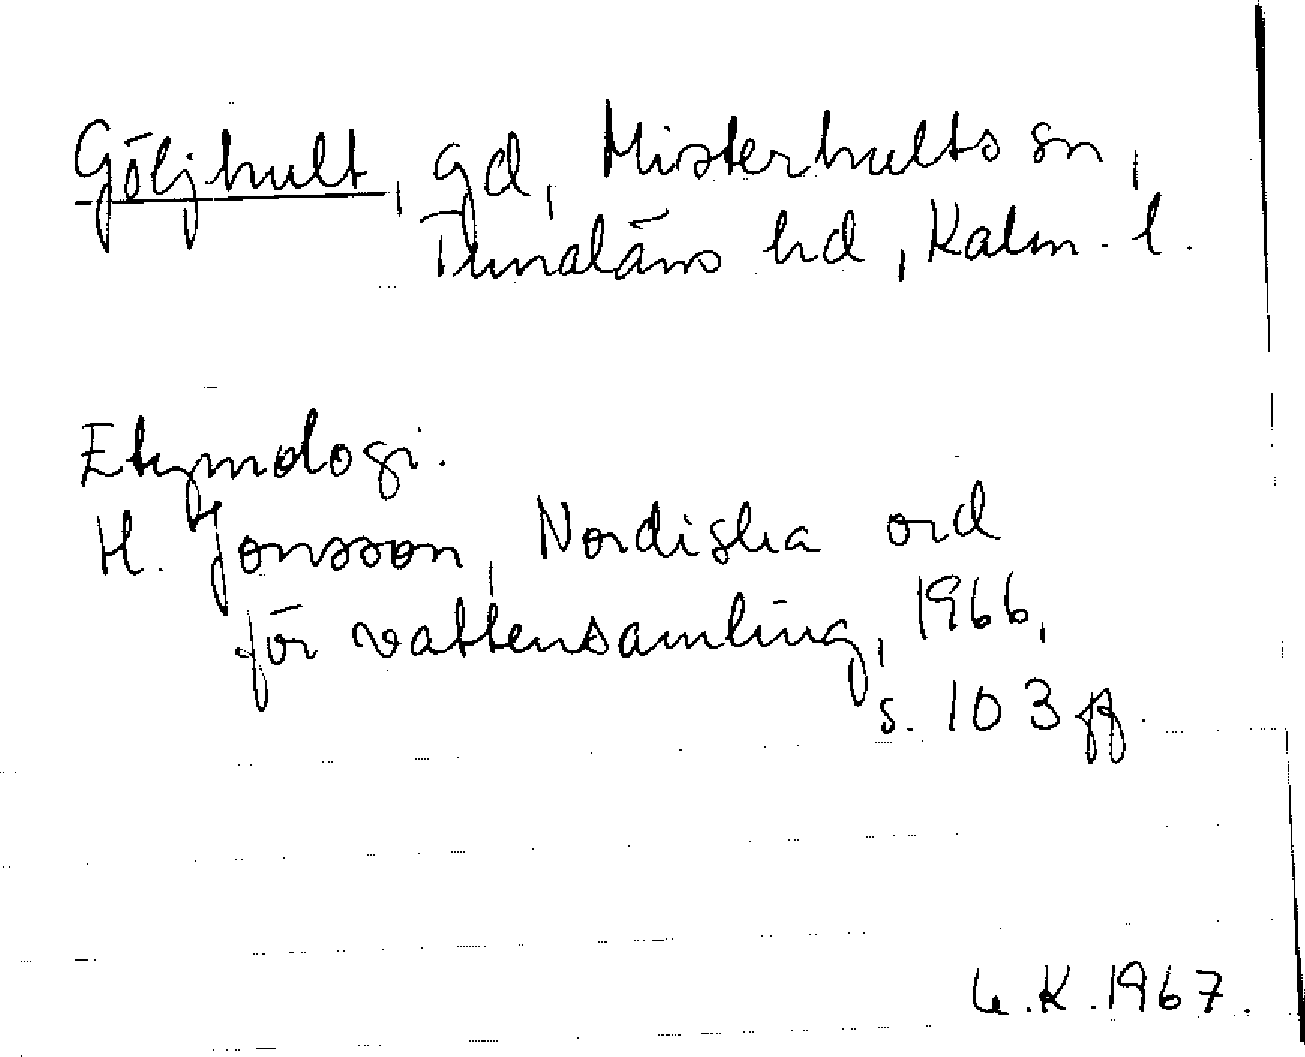 Göljhult, gd, Misterhults sn,
Tunaläns hd, Kalm. l.
Etymologi.
H. Jonsson, Nordiska ord
för vattensamling, 1966,
s. 103 ff.
K. 1967.